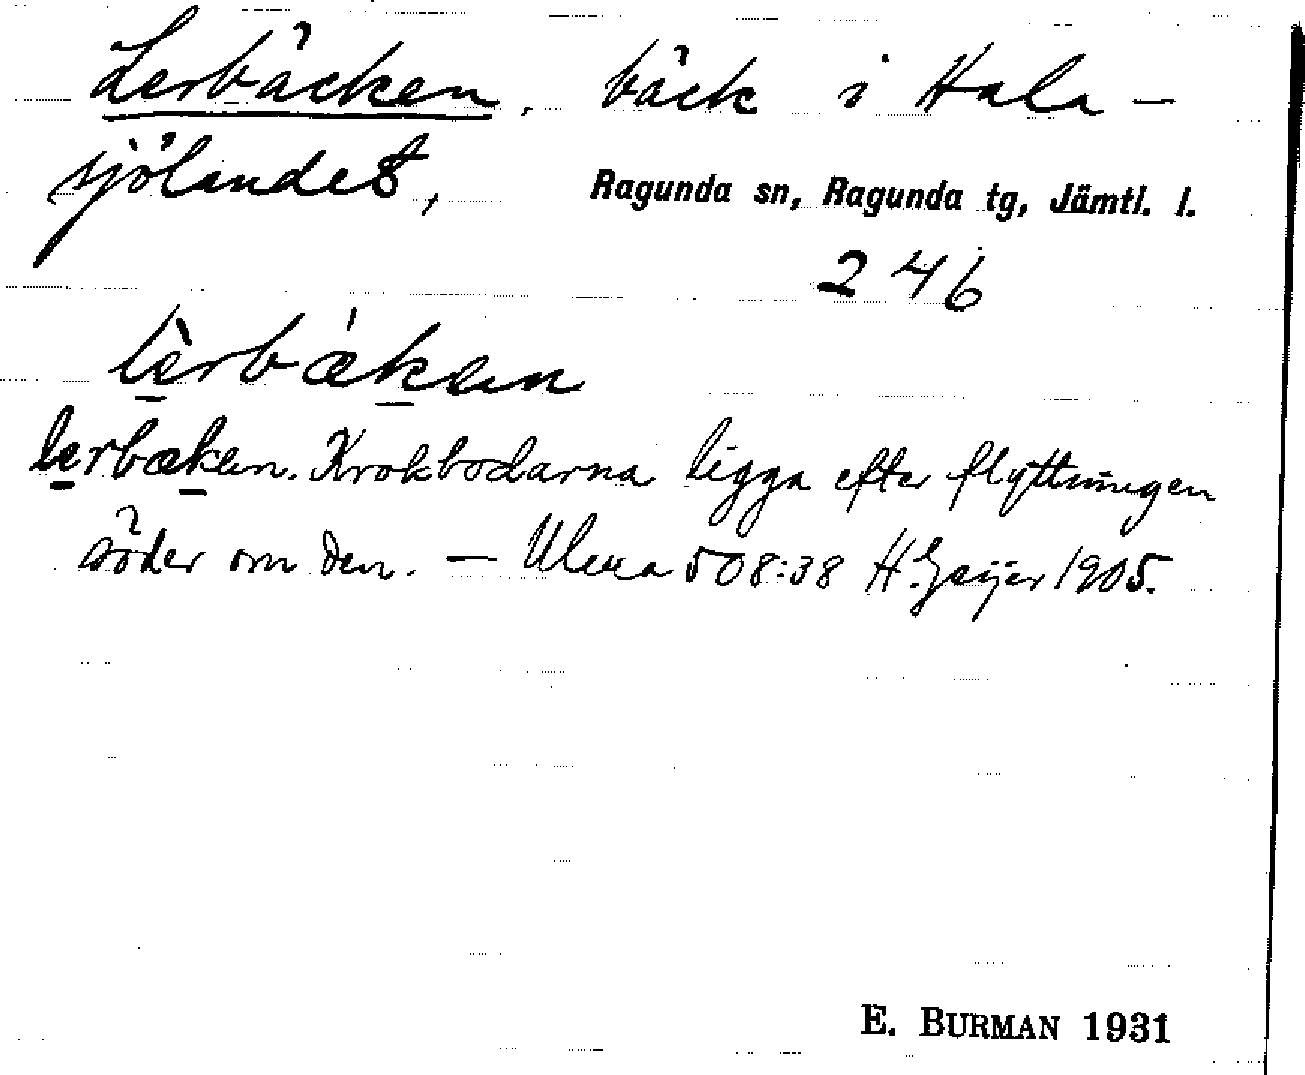 Lerbäcken, bäck i Hala-
sjölandet,
Ragunda sn, Ragunda tg, Jämtl. l.
246
lèrbækan
lerbækan. Krokbodarna ligga efter flyttningen
söder om den. — Ulma 508:38 H. Geijer 1905.
E. BURMAN 1931